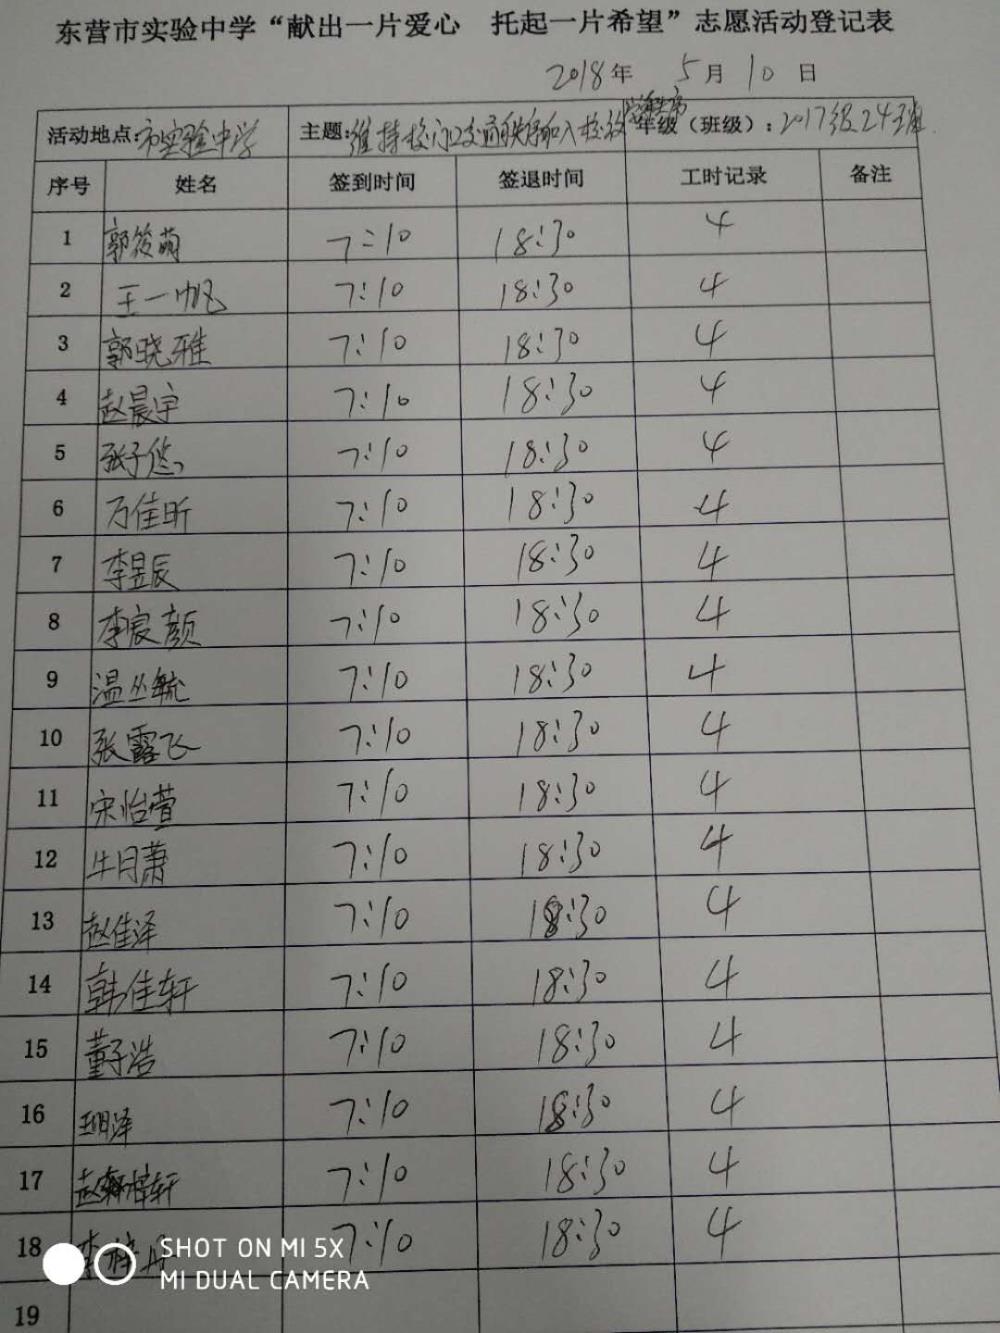 东营市实验中学“献出一片爱心 托起一片希望”志愿活动登记表
2018年 5月 10日
活动地点:市实验中学 主题:维持校门口交通秩序和入校 年级（班级）：2017级24班
序号 姓名 签到时间 签退时间 工时记录 备注
1 郭筱萌 7:10 18:30 4
2 王一帆 7:10 18:30 4
3 郭晓雅 7:10 18:30 4
4 赵晨宇 7:10 18:30 4
5 张子悠 7:10 18:30 4
6 万佳昕 7:10 18:30 4
7 李昱辰 7:10 18:30 4
8 李宸颜 7:10 18:30 4
9 温丛毓 7:10 18:30 4
10 张露飞 7:10 18:30 4
11 宋怡萱 7:10 18:30 4
12 牛月萧 7:10 18:30 4
13 赵佳泽 7:10 18:30 4
14 韩佳轩 7:10 18:30 4
15 董子浩 7:10 18:30 4
16 7:10 18:30 4
17 赵梓轩 7:10 18:30 4
18 李梓丹 7:10 18:30 4
19
SHOT ON MI 5X
MI DUAL CAMERA